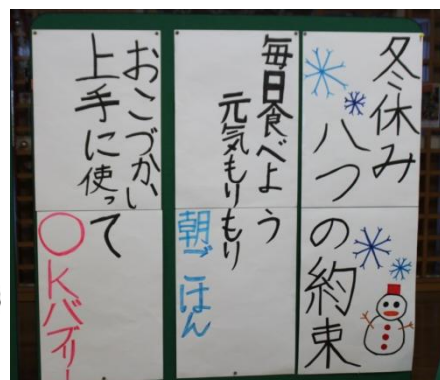 冬休み
八つの約束
毎日食べよう
元気もりもり
朝ごはん
おこづかい
上手に使って
○Kバッリー